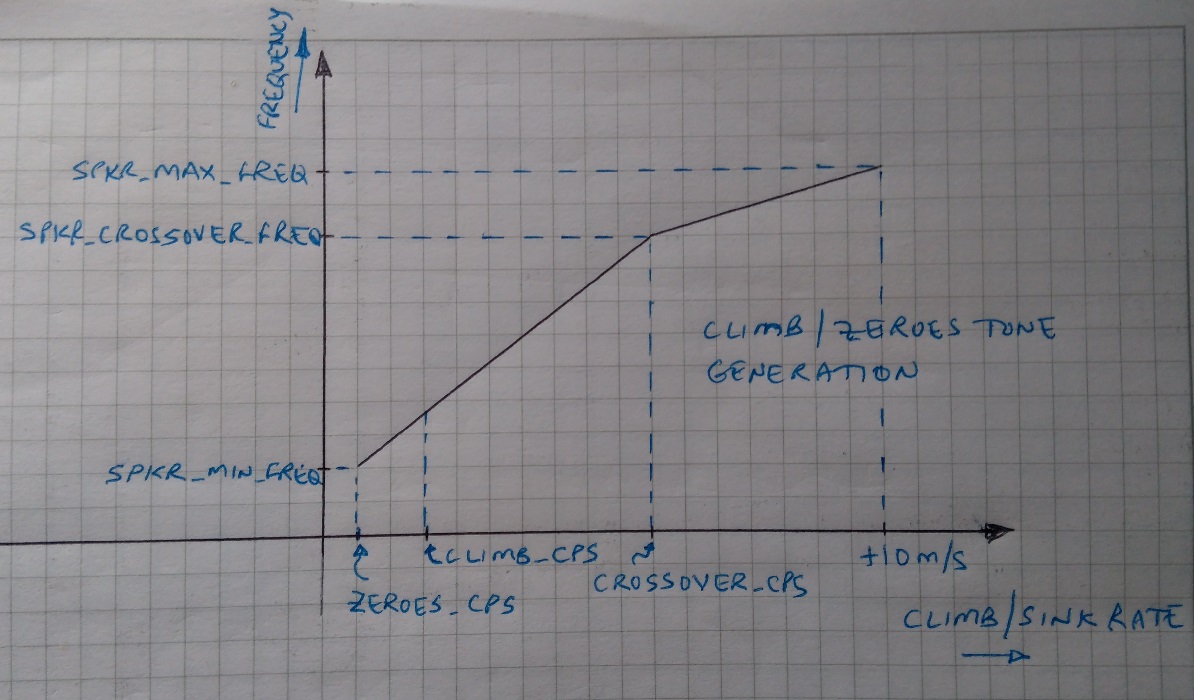 FREQUENCY
SPKR_MAX_FREQ
SPKR_CROSSOVER_FREQ
CLIMB/ZEROES TONE
GENERATION
SPKR_MIN_FREQ
CLIMB_CPS
+10m/s
CROSSOVER_CPS
ZEROES_CPS
CLIMB/SINK RATE